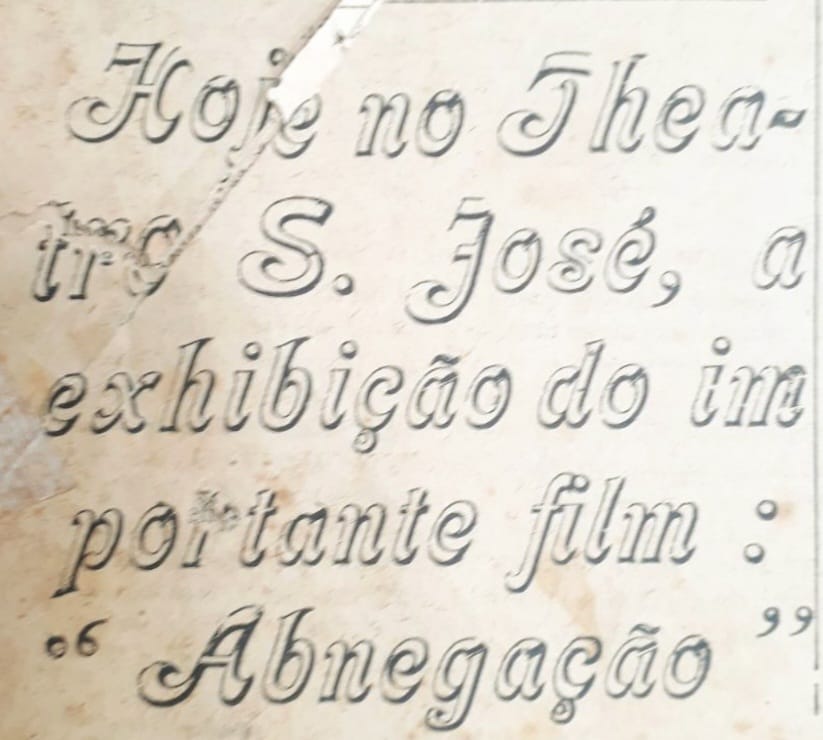 Hoje no Thea-
tro S. José, a
exhibição do im
portante film :
“ Abnegação ”